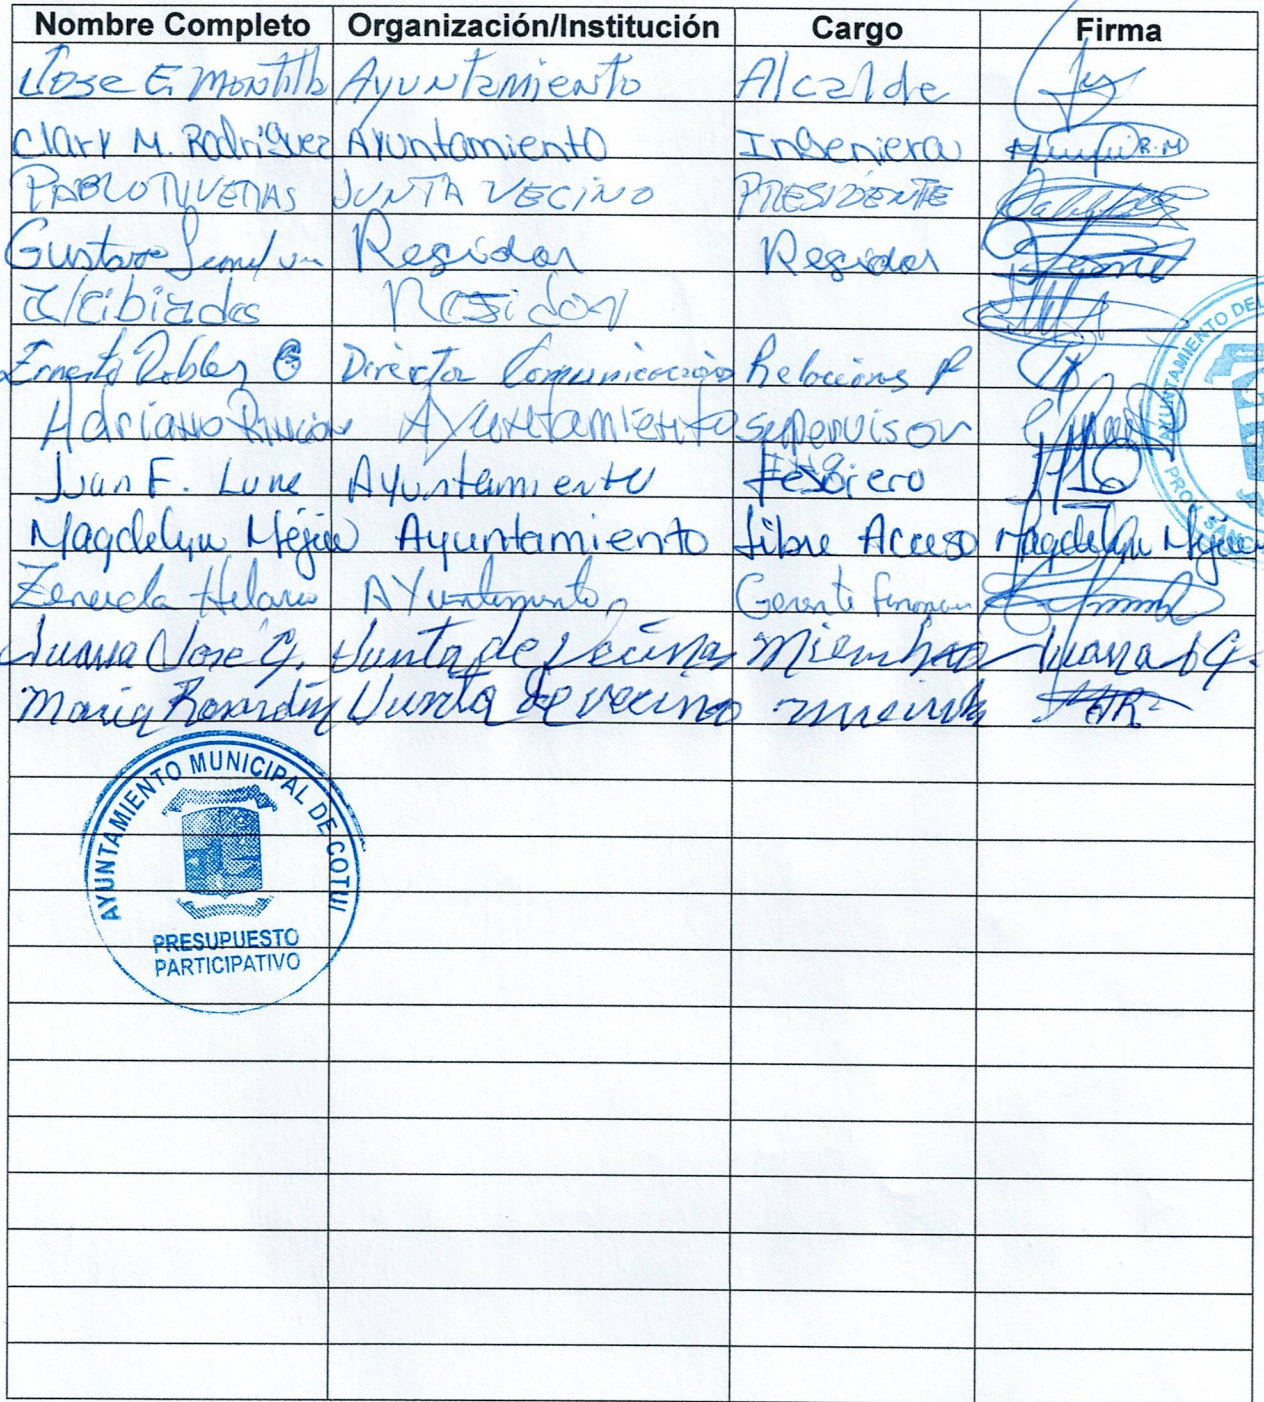 Nombre Completo Organización/Institución Cargo Firma
Jose E. Montilla Ayuntamiento Alcalde
Clary M. Rodriguez Ayuntamiento Ingeniera R.M
PABLO RIVERAS JUNTA VECINO PRESIDENTE
Gustavo Regidor Regidor
Alcibiades Regidor
Ernesto Robles Director Comunicación Relacions P
Adriano Rincón Ayuntamiento supervisor
Juan F. Luna Ayuntamiento Tesorero
Magdelyn Mejía Ayuntamiento Libre Acceso Magdelyn Mejía
Zeneida Hilario Ayuntamiento Gerente
Juana Jose G. Junta de Vecinas Miembro Juana J G.
Maria Junta de vecino
AYUNTAMIENTO DEL
AYUNTAMIENTO MUNICIPAL DE COTUI
PRESUPUESTO
PARTICIPATIVO